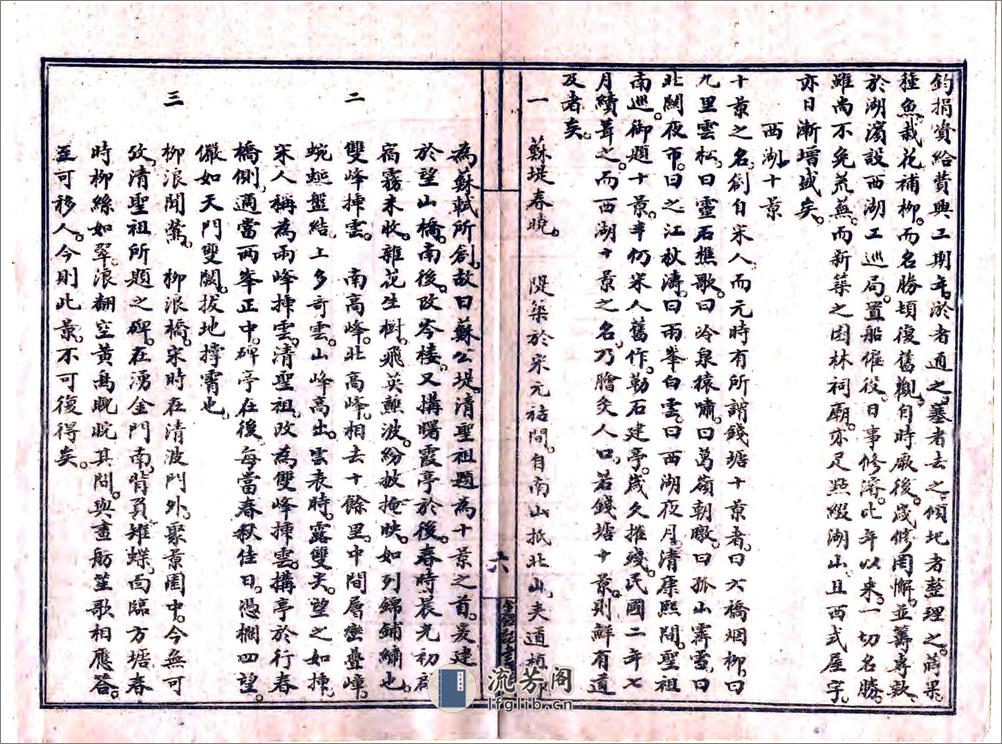 鈞捐資給費與工期年於者通之蓦者去之傾圮者整理之蒔果
種魚栽花補柳而名勝頃復舊觀自時厥後歲修罔懈並籌專款
於湖濱設西湖工巡局置船僱役日事修濬比年以來一切名勝
雖尚不免荒蕪而新築之园林祠廟亦足點綴湖山且西式屋宇
亦日漸增盛矣
西湖十景
十景之名創自宋人而元時有所謂錢塘十景者曰六橋烟柳曰
九里雲松曰靈石樵歌曰冷泉猿嘯曰葛嶺朝暾曰孤山霽雪曰
北關夜市曰之江秋濤曰兩峯白雲曰西湖夜月清康熙間聖祖
南巡御題十景率仍宋人舊作勒石建亭歲久摧殘民國二年七
月續葺之而西湖十景之名乃膾炙人口若錢塘十景則鮮有道
及者矣
一 蘇堤春曉 隄築於宋元祜間自南山抵北山夾道植柳
為蘇軾所創故曰蘇公堤清聖祖題為十景之首爰建
於望山橋南後改岑樓又搆曙霞亭於後春時晨光初啟
宿霧未收雜花生樹飛英蘸波紛披掩映如列錦鋪繡也
二 雙峰挿雲 南高峰北高峰相去十餘里中間層巒疊嶂
蜿蜒盤結上多奇雲山峰高出雲表時露雙尖望之如挿
宋人稱為兩峰挿雲清聖祖改為雙峰挿雲搆亭於行春
橋側適當兩峯正中碑亭在後每當春秋佳日憑欄四望
儼如天門雙闕拔地撑霄也
三 柳浪聞鶯 柳浪橋宋時在清波門外聚景園中今無可
攷清聖祖所題之碑在湧金門南背負雉蝶面臨方塘春
時柳絲如翠浪翻空黃鳥睍睆其間與畫舫笙歌相應答
至可移人今則此景不可復得矣
六
流芳阁
lfglib.cn